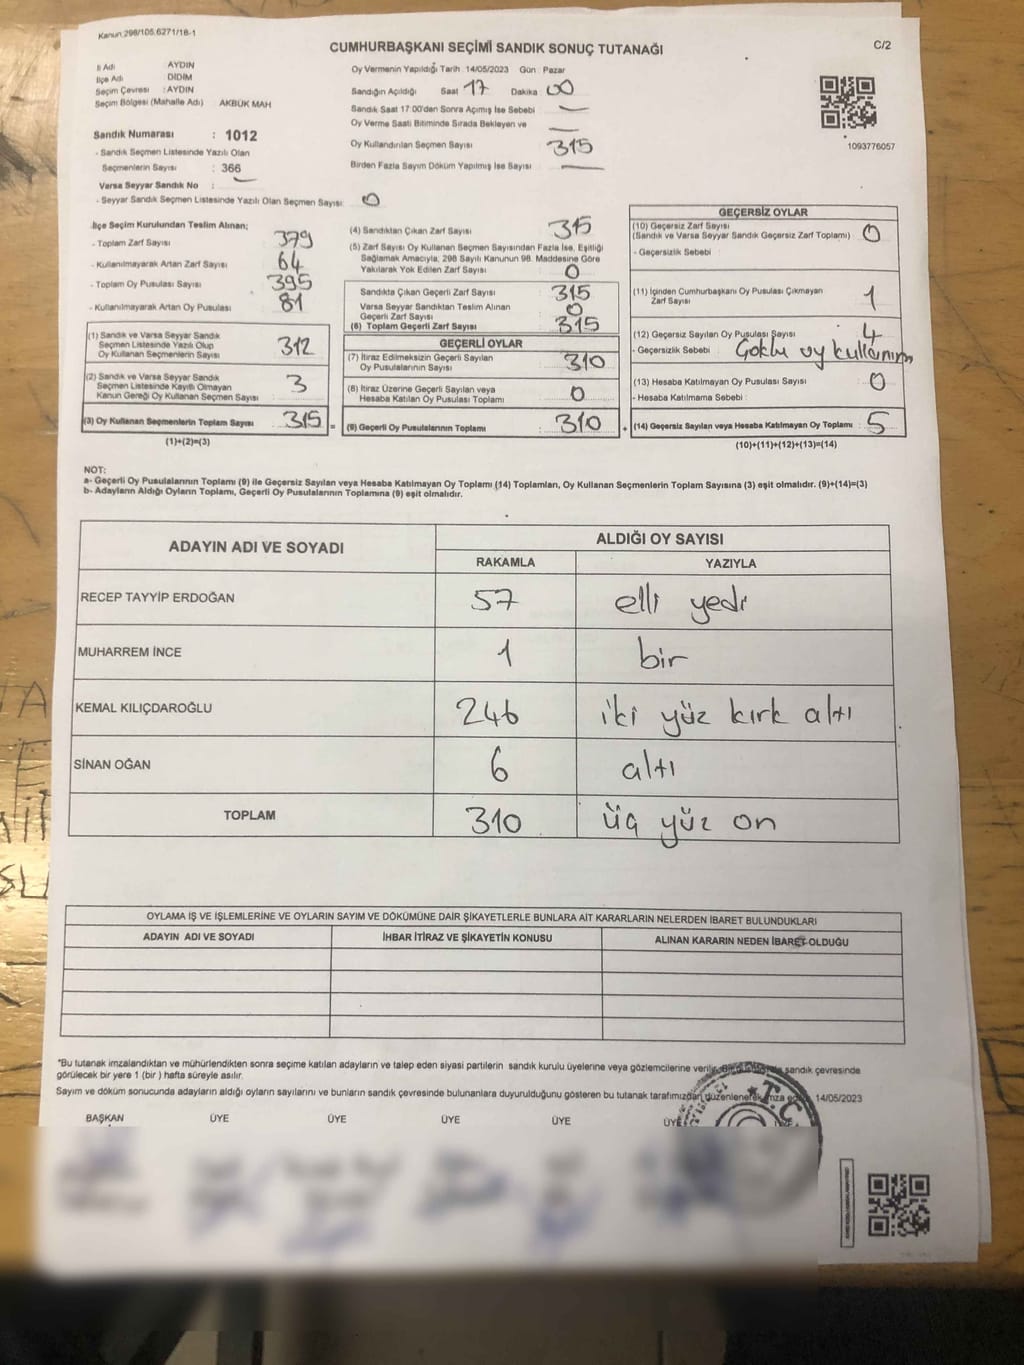 Kanun:298/105,6271/18-1
CUMHURBAŞKANI SEÇİMİ SANDIK SONUÇ TUTANAĞI
C/2
İl Adı : AYDIN
İlçe Adı : DİDİM
Seçim Çevresi : AYDIN
Seçim Bölgesi (Mahalle Adı) AKBÜK MAH
Sandık Numarası : 1012
- Sandık Seçmen Listesinde Yazılı Olan
Seçmenlerin Sayısı : 366
Varsa Seyyar Sandık No :
- Seyyar Sandık Seçmen Listesinde Yazılı Olan Seçmen Sayısı: 0
Oy Vermenin Yapıldığı Tarih :14/05/2023 Gün : Pazar
Sandığın Açıldığı Saat 17 Dakika 00
Sandık Saat 17:00'den Sonra Açımış İse Sebebi
Oy Verme Saati Bitiminde Sırada Bekleyen ve
Oy Kullandırılan Seçmen Sayısı 315
Birden Fazla Sayım Döküm Yapılmış İse Sayısı
1093776057
İlçe Seçim Kurulundan Teslim Alınan;
- Toplam Zarf Sayısı 379
- Kullanılmayarak Artan Zarf Sayısı 64
- Toplam Oy Pusulası Sayısı 395
- Kullanılmayarak Artan Oy Pusulası 81
(1) Sandık ve Varsa Seyyar Sandık
Seçmen Listesinde Yazılı Olup
Oy Kullanan Seçmenlerin Sayısı 312
(2) Sandık ve Varsa Seyyar Sandık
Seçmen Listesinde Kayıtlı Olmayan
Kanun Gereği Oy Kullanan Seçmen Sayısı : 3
(3) Oy Kullanan Seçmenlerin Toplam Sayısı 315 =
(1)+(2)=(3)
(4) Sandıktan Çıkan Zarf Sayısı 315
(5) Zarf Sayısı Oy Kullanan Seçmen Sayısından Fazla İse, Eşitliği
Sağlamak Amacıyla, 298 Sayılı Kanunun 98. Maddesine Göre
Yakılarak Yok Edilen Zarf Sayısı 0
Sandıkta Çıkan Geçerli Zarf Sayısı : 315
Varsa Seyyar Sandıktan Teslim Alınan
Geçerli Zarf Sayısı : 0
(6) Toplam Geçerli Zarf Sayısı : 315
GEÇERLİ OYLAR
(7) İtiraz Edilmeksizin Geçerli Sayılan
Oy Pusulalarının Sayısı : 310
(8) İtiraz Üzerine Geçerli Sayılan veya
Hesaba Katılan Oy Pusulası Toplamı : 0
(9) Geçerli Oy Pusulalarının Toplamı : 310 +
GEÇERSİZ OYLAR
(10) Geçersiz Zarf Sayısı
(Sandık ve Varsa Seyyar Sandık Geçersiz Zarf Toplamı) : 0
- Geçersizlik Sebebi :
(11) İçinden Cumhurbaşkanı Oy Pusulası Çıkmayan
Zarf Sayısı 1
(12) Geçersiz Sayılan Oy Pusulası Sayısı 4
- Geçersizlik Sebebi : Çoklu oy kullanımı
(13) Hesaba Katılmayan Oy Pusulası Sayısı : 0
- Hesaba Katılmama Sebebi :
(14) Geçersiz Sayılan veya Hesaba Katılmayan Oy Toplamı : 5
(10)+(11)+(12)+(13)=(14)
NOT:
a- Geçerli Oy Pusulalarının Toplamı (9) ile Geçersiz Sayılan veya Hesaba Katılmayan Oy Toplamı (14) Toplamları, Oy Kullanan Seçmenlerin Toplam Sayısına (3) eşit olmalıdır. (9)+(14)=(3)
b- Adayların Aldığı Oyların Toplamı, Geçerli Oy Pusulalarının Toplamına (9) eşit olmalıdır.
ADAYIN ADI VE SOYADI
ALDIĞI OY SAYISI
RAKAMLA YAZIYLA
RECEP TAYYİP ERDOĞAN 57 elli yedi
MUHARREM İNCE 1 bir
KEMAL KILIÇDAROĞLU 246 iki yüz kırk altı
SİNAN OĞAN 6 altı
TOPLAM 310 üç yüz on
OYLAMA İŞ VE İŞLEMLERİNE VE OYLARIN SAYIM VE DÖKÜMÜNE DAİR ŞİKAYETLERLE BUNLARA AİT KARARLARIN NELERDEN İBARET BULUNDUKLARI
ADAYIN ADI VE SOYADI İHBAR İTİRAZ VE ŞİKAYETİN KONUSU ALINAN KARARIN NEDEN İBARET OLDUĞU
*Bu tutanak imzalandıktan ve mühürlendikten sonra seçime katılan adayların ve talep eden siyasi partilerin sandık kurulu üyelerine veya gözlemcilerine verilir. sandık çevresinde
görülecek bir yere 1 (bir ) hafta süreyle asılır.
Sayım ve döküm sonucunda adayların aldığı oyların sayılarını ve bunların sandık çevresinde bulunanlara duyurulduğunu gösteren bu tutanak tarafımızdan düzenlenerek imza 14/05/2023
BAŞKAN ÜYE ÜYE ÜYE ÜYE ÜYE
T.C